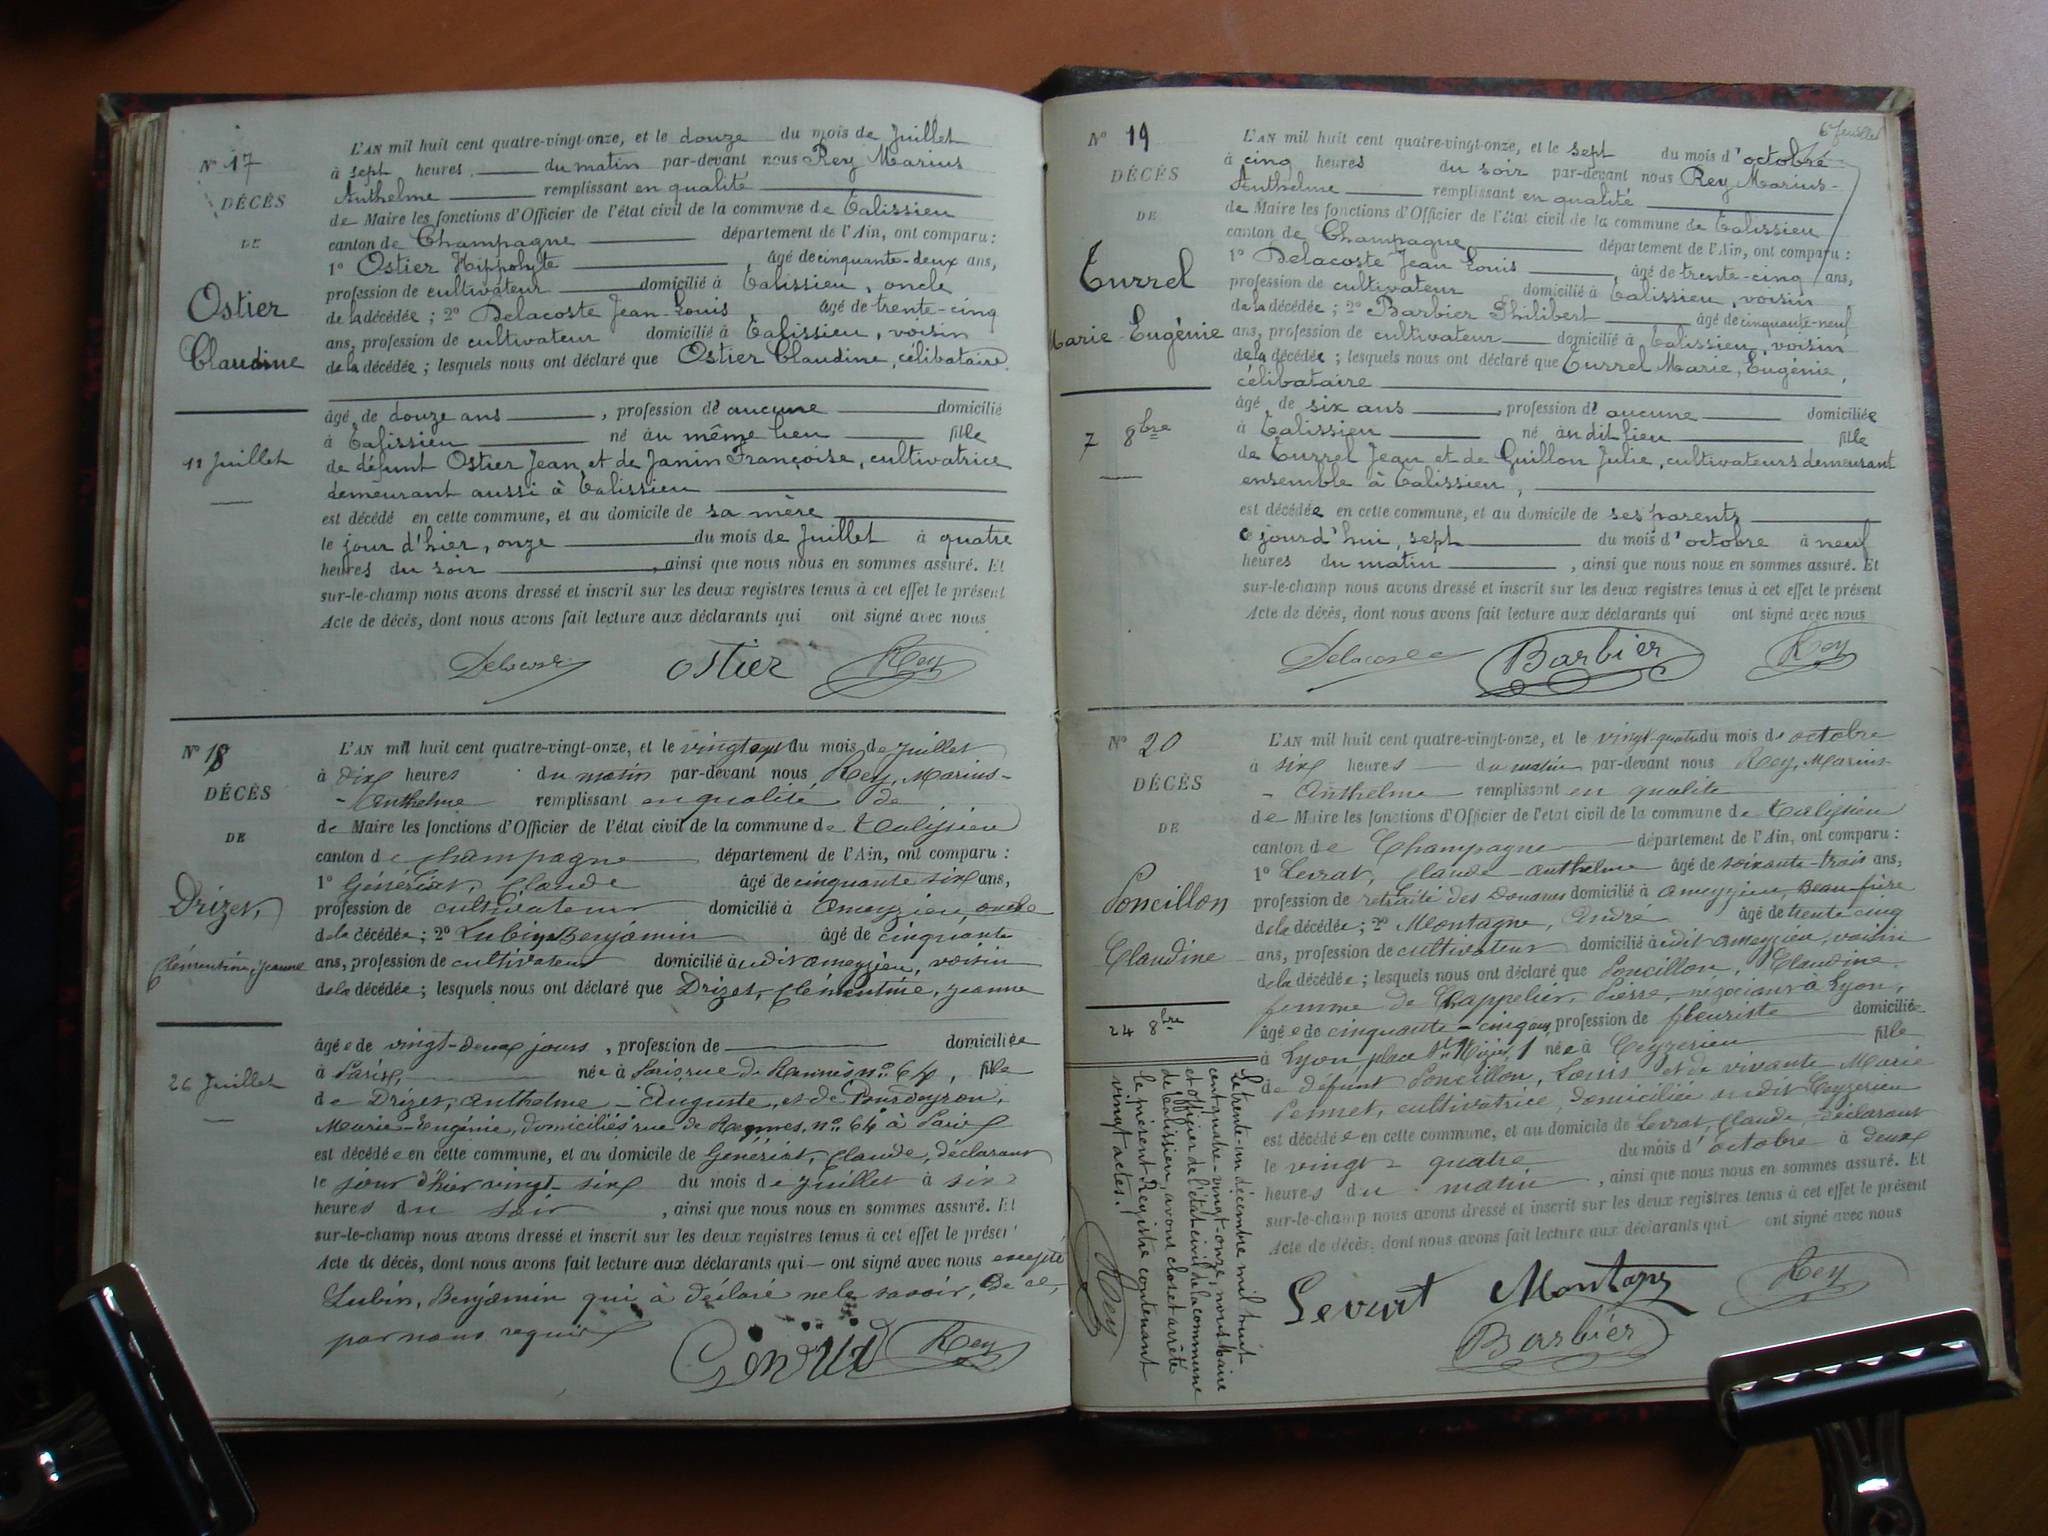 N° 17
DÉCÈS
DE
Ostier
Claudine
11 Juillet
L'AN mil huit cent quatre-vingt-onze, et le douze du mois de Juillet
à sept heures du matin par-devant nous Rey Marius
Anthelme remplissant en qualité
de Maire les fonctions d'Officier de l'état civil de la commune de Talissieu
canton de Champagne département de l'Ain, ont comparu :
1° Ostier Hippolyte, âgé de cinquante-deux ans,
profession de cultivateur domicilié à Talissieu, oncle
de la décédée ; 2° Delacoste Jean-Louis âgé de trente-cinq
ans, profession de cultivateur domicilié à Talissieu, voisin
de la décédée ; lesquels nous ont déclaré que Ostier Claudine, célibataire
âgé de douze ans, profession de aucune domicilié
à Talissieu né au même lieu fille
de défunt Ostier Jean et de Janin Françoise, cultivatrice
demeurant aussi à Talissieu
est décédé en cette commune, et au domicile de sa mère
le jour d'hier, onze du mois de Juillet à quatre
heures du soir, ainsi que nous nous en sommes assuré. Et
sur-le-champ nous avons dressé et inscrit sur les deux registres tenus à cet effet le présent
Acte de décès, dont nous avons fait lecture aux déclarants qui ont signé avec nous
Delacoste Ostier Rey
N° 18
DÉCÈS
DE
Drizet,
Clémentine, Jeanne
26 Juillet
L'AN mil huit cent quatre-vingt-onze, et le vingt sept du mois de Juillet
à dix heures du matin par-devant nous Rey, Marius-
-Anthelme remplissant en qualité de
de Maire les fonctions d'Officier de l'état civil de la commune de Talissieu
canton de Champagne département de l'Ain, ont comparu :
1° Génériat, Claude âgé de cinquante six ans,
profession de cultivateur domicilié à Ameyzieu, oncle
de la décédée ; 2° Lubin Benjamin âgé de cinquante
ans, profession de cultivateur domicilié à udit Ameyzieu, voisin
de la décédée ; lesquels nous ont déclaré que Drizet, Clémentine, Jeanne
âgée de vingt-deux jours, profession de domiciliée
à Paris, née à Paris, rue de Rennes n° 64, fille
de Drizet, Anthelme-Auguste, et de Pourdeyron,
Marie-Eugénie, domiciliés rue de Rennes, n° 64 à Paris
est décédée en cette commune, et au domicile de Génériat, Claude, déclarant
le jour d'hier vingt-six du mois de Juillet à six
heures du soir, ainsi que nous nous en sommes assuré. Et
sur-le-champ nous avons dressé et inscrit sur les deux registres tenus à cet effet le présent
Acte de décès, dont nous avons fait lecture aux déclarants qui — ont signé avec nous excepté
Lubin, Benjamin qui a déclaré ne le savoir, de ce,
par nous requis
Rey
6e feuillet
N° 19
DÉCÈS
DE
Turrel
Marie-Eugénie
7 8bre
L'AN mil huit cent quatre-vingt-onze, et le sept du mois d'octobre
à cinq heures du soir par-devant nous Rey Marius-
Anthelme remplissant en qualité
de Maire les fonctions d'Officier de l'état civil de la commune de Talissieu
canton de Champagne département de l'Ain, ont comparu :
1° Delacoste Jean Louis, âgé de trente-cinq ans,
profession de cultivateur domicilié à Talissieu, voisin
de la décédée ; 2° Barbier Philibert âgé de cinquante-neuf
ans, profession de cultivateur domicilié à Talissieu, voisin
de la décédée ; lesquels nous ont déclaré que Turrel Marie, Eugénie,
célibataire
âgé de six ans, profession de aucune domiciliée
à Talissieu né au dit lieu fille
de Turrel Jean et de Guillon Julie, cultivateurs demeurant
ensemble à Talissieu,
est décédée en cette commune, et au domicile de ses parents
cejourd'hui, sept du mois d'octobre à neuf
heures du matin, ainsi que nous nous en sommes assuré. Et
sur-le-champ nous avons dressé et inscrit sur les deux registres tenus à cet effet le présent
Acte de décès, dont nous avons fait lecture aux déclarants qui ont signé avec nous
Delacoste Barbier Rey
N° 20
DÉCÈS
DE
Poncillon
Claudine
24 8bre
L'AN mil huit cent quatre-vingt-onze, et le vingt-quatre du mois d'octobre
à six heures du matin par-devant nous Rey, Marius-
-Anthelme remplissant en qualité
de Maire les fonctions d'Officier de l'état civil de la commune de Talissieu
canton de Champagne département de l'Ain, ont comparu :
1° Levrat, Claude-Anthelme âgé de soixante-trois ans,
profession de retraité des Douanes domicilié à Ameyzieu, Beau-frère
de la décédée ; 2° Montagne, André âgé de trente cinq
ans, profession de cultivateur domicilié à udit Ameyzieu, voisin
de la décédée ; lesquels nous ont déclaré que Poncillon, Claudine
femme de Chappelier, Pierre, négociant à Lyon,
âgée de cinquante-cinq ans, profession de fleuriste domiciliée
à Lyon, place St Nizier, 1 née à Ceyzerieu fille
de défunt Poncillon, Louis et de vivante Marie
Pennet, cultivatrice, domiciliée audit Ceyzerieu
est décédée en cette commune, et au domicile de Levrat, Claude, déclarant
le vingt-quatre du mois d'octobre à deux
heures du matin, ainsi que nous nous en sommes assuré. Et
sur-le-champ nous avons dressé et inscrit sur les deux registres tenus à cet effet le présent
Acte de décès, dont nous avons fait lecture aux déclarants qui ont signé avec nous
Levrat Montagne Rey
Barbier
Le trente-un décembre mil huit-
cent quatre-vingt-onze, nous Maire
et officier de l'état civil de la commune
de Talissieu, avons clos et arrêté
le présent Registre contenant
vingt actes.
Rey